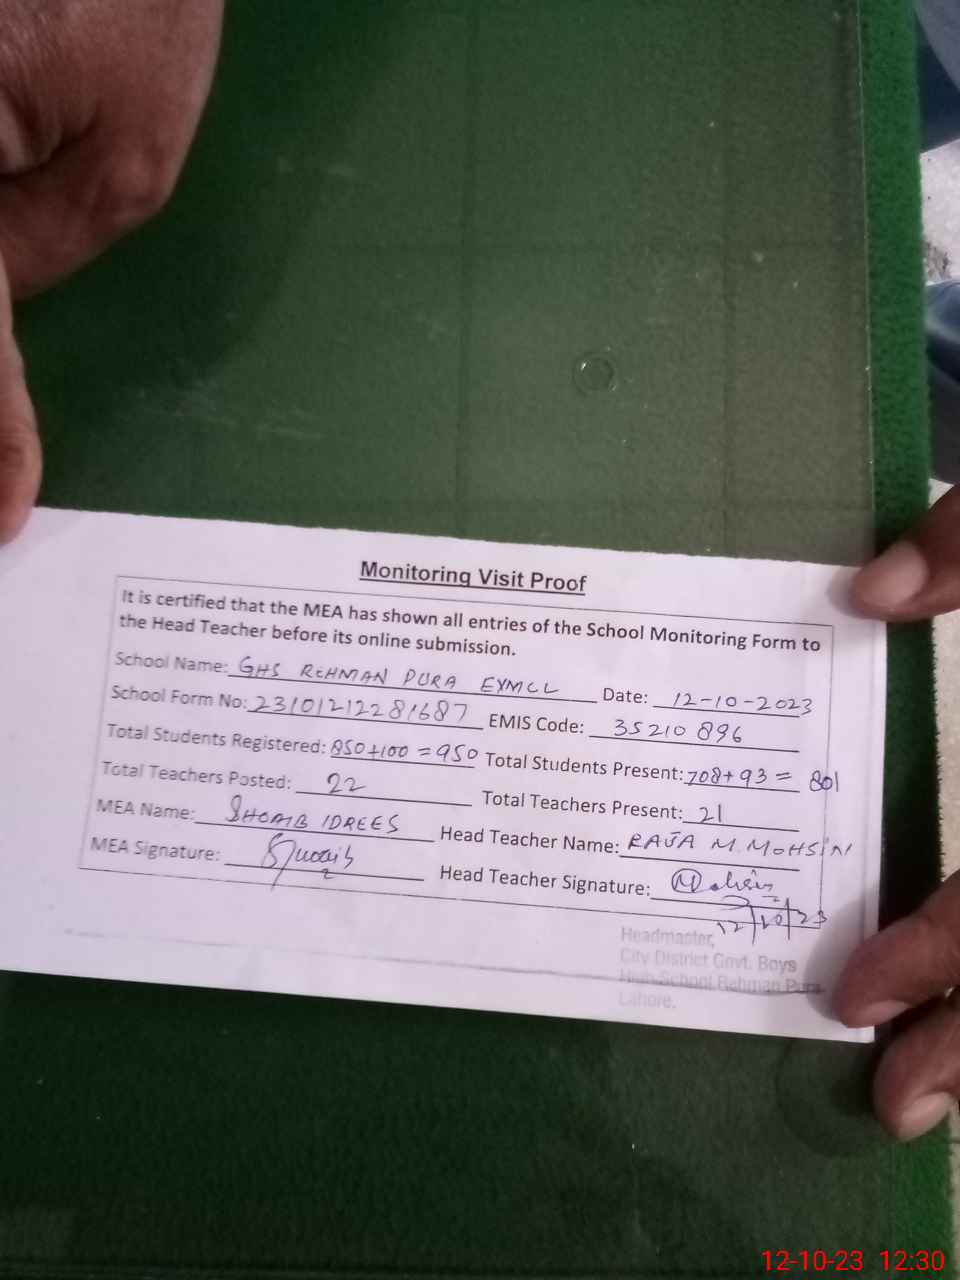 Monitoring Visit Proof
It is certified that the MEA has shown all entries of the School Monitoring Form to
the Head Teacher before its online submission.
School Name: GHS REHMAN PURA EXMCL Date: 12-10-2023
School Form No: 23101212281687 EMIS Code: 35210896
Total Students Registered: 850+100 = 950 Total Students Present: 708+93 = 801
Total Teachers Posted: 22 Total Teachers Present: 21
MEA Name: SHOAIB IDREES Head Teacher Name: RAJA M. MOHSIN
MEA Signature: Shoaib Head Teacher Signature: Mohsin
12/10/23
Headmaster,
City District Govt. Boys
High School Rehman Pura
Lahore.
12-10-23 12:30